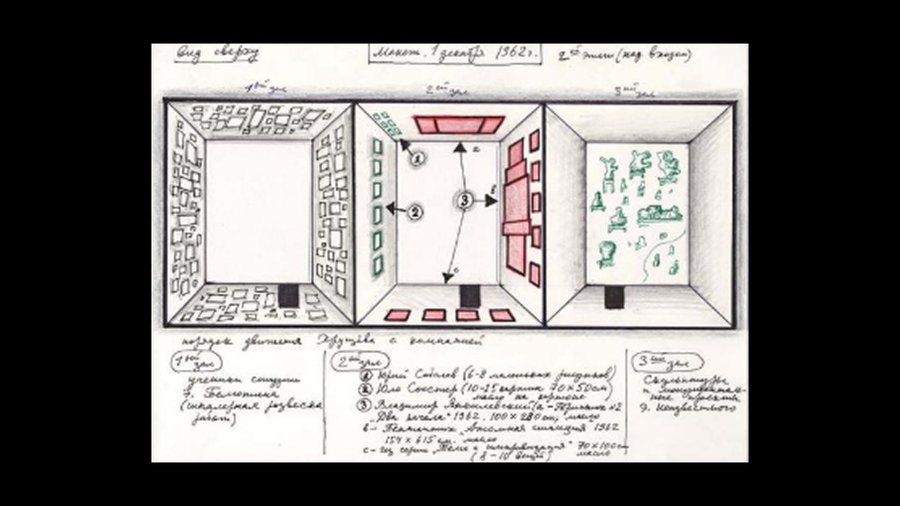 Вид сверху
Макет. 1 декабря 1962 г.
2ой этаж (над входом)
1ый зал
2ой зал
3ий зал
1
2
3
а
в
с
порядок движения Хрущёва с компанией
1ый зал
ученики студии
Э. Белютина
(шпалерная развеска
работ)
2ой зал
1 Юрий Соболев (6-8 маленьких рисунков)
2 Юло Соостер (10-15 картин 70×50см)
масло на картоне
3 Владимир Янкилевский (а - Триптих №2
"Два начала" 1962. 100×280 см, масло
в - Пентаптих "Атомная станция" 1962
154×615 см. масло
с - из серии "Тема и импровизация" 70×100см
(8-10 вещей) масло
3ий зал
Скульптуры
и монументаль-
ные проекты
Э. Неизвестного